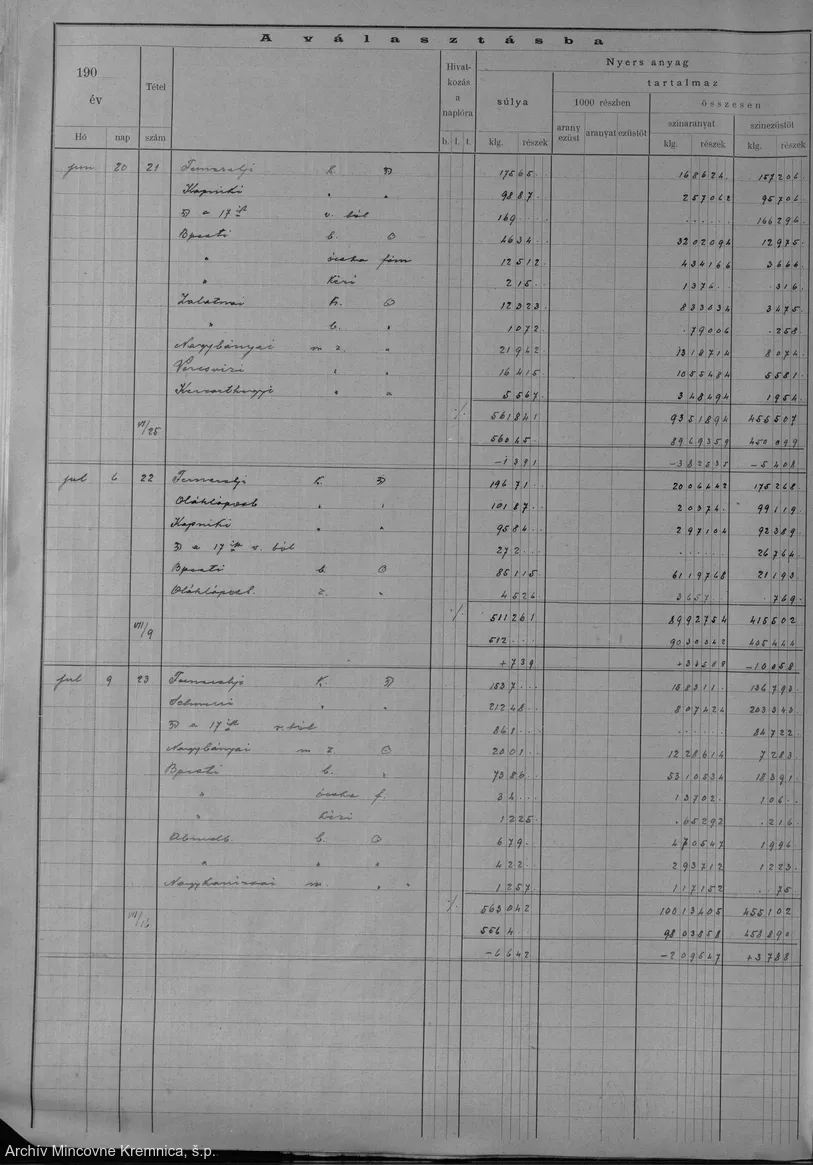 A választásba
190
év
Tétel
Hivat-
kozás
a
naplóra
Nyers anyag
súlya
tartalmaz
1000 részben
összesen
arany
ezüst
aranyat
ezüstöt
színaranyat
színezüstöt
Hó nap szám
b. f. t.
klg. részek
klg. részek
klg. részek
jun 20 21 K. 17565 168624 157206
Kapniki " " 9887 257062 95706
a 17 ik v. ból 169 146296
Bpesti b. 4634 3202094 12975
" ócska fém 12512 434166 3666
" Kézi 215 1376 316
Zalatnai K. 12323 833034 3475
" b. " 1072 79006 258
Nagybányai m z. " 21942 1318714 8074
Veresvizi " " 16415 1055484 5581
" " 5567 348494 1954
·/. 561841 9351894 455507
VI/25 56045 8969359 450099
-1391 -382535 -5408
jul 6 22 K. 19671 2006442 175268
Oláhlápos " " 10187 20374 99119
Kapniki " " 9584 297104 92389
a 17 ik v. ból 272 26764
Bpesti b. 85115 6119768 21193
z. " 4526 3657 769
·/. 511261 8992754 415502
VII/9 512 9030342 405444
+739 +37588 -10058
jul 9 23 K. 1537 158311 136793
" " 21248 807424 203343
a 17 ik v. ból 861 84722
Nagybányai m z. 2001 1228614 7283
Bpesti b. " 7386 5310534 18391
" ócska f. 34 13702 106
" Kézi 1225 65292 216
b. 679 470547 1996
" " " 422 293712 1223
Nagykanizsai m. " " 1257 117152 75
·/. 563042 10013405 455102
VII/16 5564 9803858 458890
-6642 -209547 +3788
Archív Mincovne Kremnica, š.p.